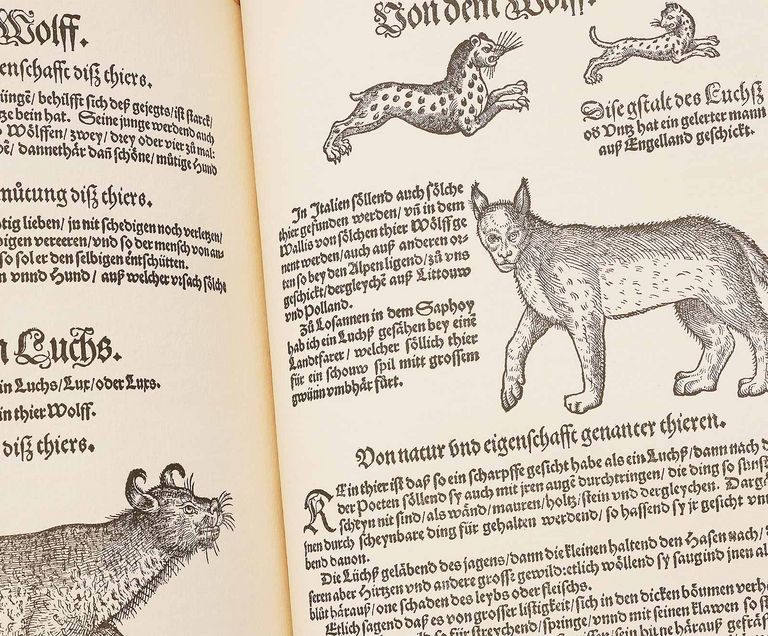 Wolff.
enschafft diß thiers.
üngẽ/ behilfft sich deß gejegts/ ist starck/
tze bein hat. Seine junge werdend auch
Wölffen/ zwey/ drey oder vier zů mal:
dannethär dañ schöne/ mütige Hund
můtung diß thiers.
tig lieben/ jn nit schedigen noch verletzen/
digen vereeren/ vnd so der mensch von
so sol er den selbigen entschütten.
n vnnd Hund/ auß welcher vrsach sölche
n Luchs.
in Luchs/ Lux/ oder Luxs.
in thier Wolff.
diß thiers.
Von dem Wolff.
Dise gstalt des Luchß
oð Vntz hat ein gelerter mann
auß Engelland geschickt.
In Italien söllend auch sölche
thier gefunden werden/ vñ in dem
Wallis von sölchen thier Wölffge
nent werden/ auch auß anderen or-
ten so bey den Alpen ligend/ zů vns
geschickt/ dergleychẽ auß Littouw
vnd Polland.
Zů Losannen in dem Saphoy
hab ich ein Luchß gesähen bey einẽ
Landtfarer/ welcher söllich thier
für ein schouw spil mitt grossem
gwünn vmbhär fürt.
Von natur vnd eigenschafft genanter thieren.
KEin thier ist daß so ein scharpffe gesicht habe als ein Luchß/ dann nach d
der Poeten söllend sy auch mit jren augẽ durchtringen/ die ding so sunst
scheyn nit sind/ als wänd/ mauren/ holtz/ stein vnd dergleychen. Dargä
jnen durch scheynbare ding für gehalten werdend/ so hassend sy jr gesicht vn
bend dauon.
Die Lüchß geläbend des jagens/ dann die kleinen haltend den Hasen nach/ d
seren aber Hirtzen vnd andere grosse gewild: etlich wöllend sy saugind jnen al
blůt härauß/ one schaden des leybs oder fleischs.
Etlich sagend daß es von grosser listigkeit/ sich in den dicken böumen verh
so für streychend/ springe/ vnnd mit seinen klawen so